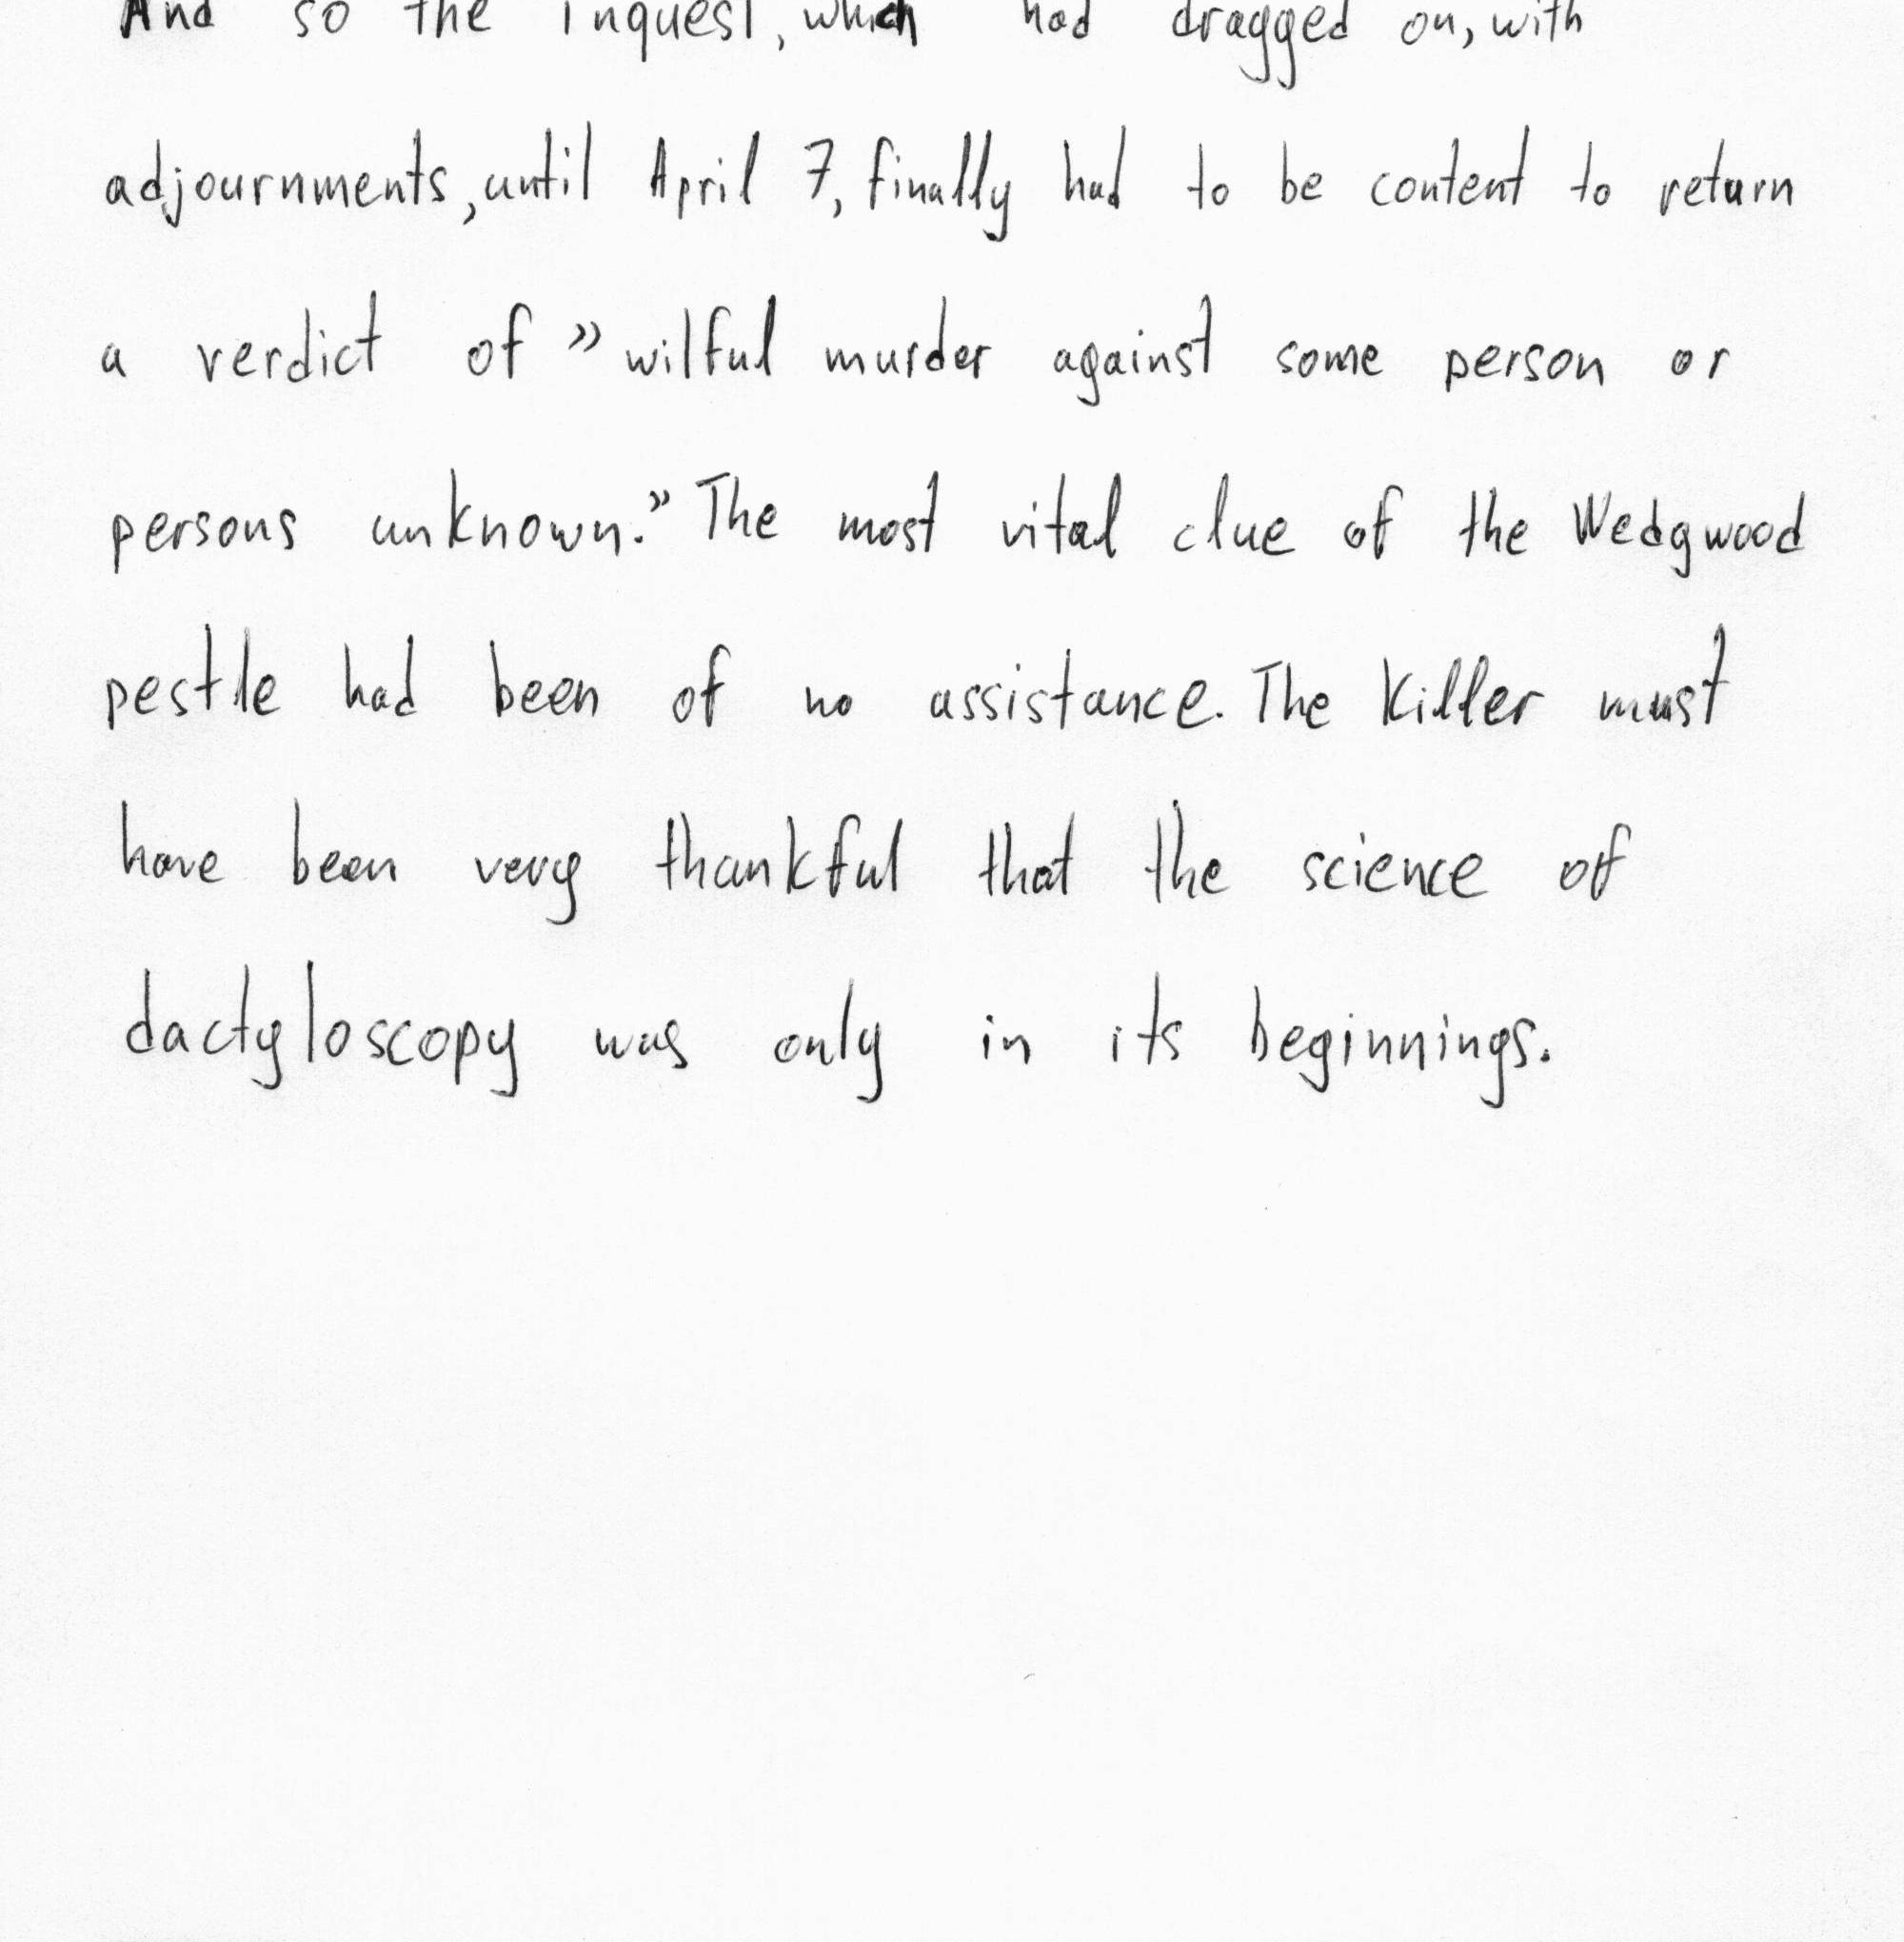 And so the inquest, which had dragged on, with
adjournments, until April 7, finally had to be content to return
a verdict of " wilful murder against some person or
persons unknown." The most vital clue of the Wedgwood
pestle had been of no assistance. The Killer must
have been very thankful that the science of
dactyloscopy was only in its beginnings.